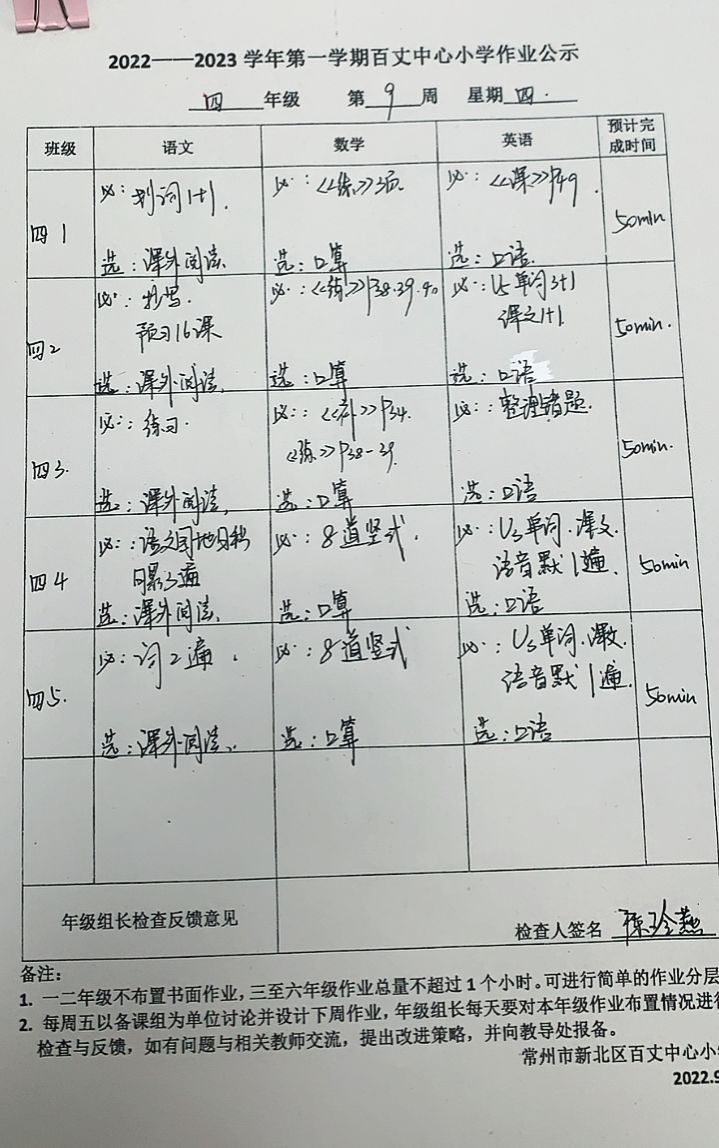 2022——2023学年第一学期百丈中心小学作业公示
四 年级 第 9 周 星期 四.
班级 语文 数学 英语 预计完成时间
四1
必：抄词1+1.
选：课外阅读.
必：《练》3页
选：口算
必：《课》P49.
选：口语.
50min
四2
必：抄写.
预习16课
选：课外阅读.
必：《练》P38.39.40
选：口算
必：U5单词3+1
课文1+1
选：口语
50min.
四3.
必：练习.
选：课外阅读.
必：《补》P34.
《练》P38-39.
选：口算
必：整理错题.
选：口语
50min.
四4
必：语文园地日积
月累3遍
选：课外阅读.
必：8道竖式.
选：口算
必：U3单词.课文.
语音默1遍.
选：口语
50min
四5.
必：词2遍.
选：课外阅读.
必：8道竖式
选：口算
必：U3单词.课文.
语音默1遍.
选：口语
50min
年级组长检查反馈意见
检查人签名
备注：
1. 一二年级不布置书面作业，三至六年级作业总量不超过1个小时。可进行简单的作业分层
2. 每周五以备课组为单位讨论并设计下周作业，年级组长每天要对本年级作业布置情况进行
检查与反馈，如有问题与相关教师交流，提出改进策略，并向教导处报备。
常州市新北区百丈中心小学
2022.9